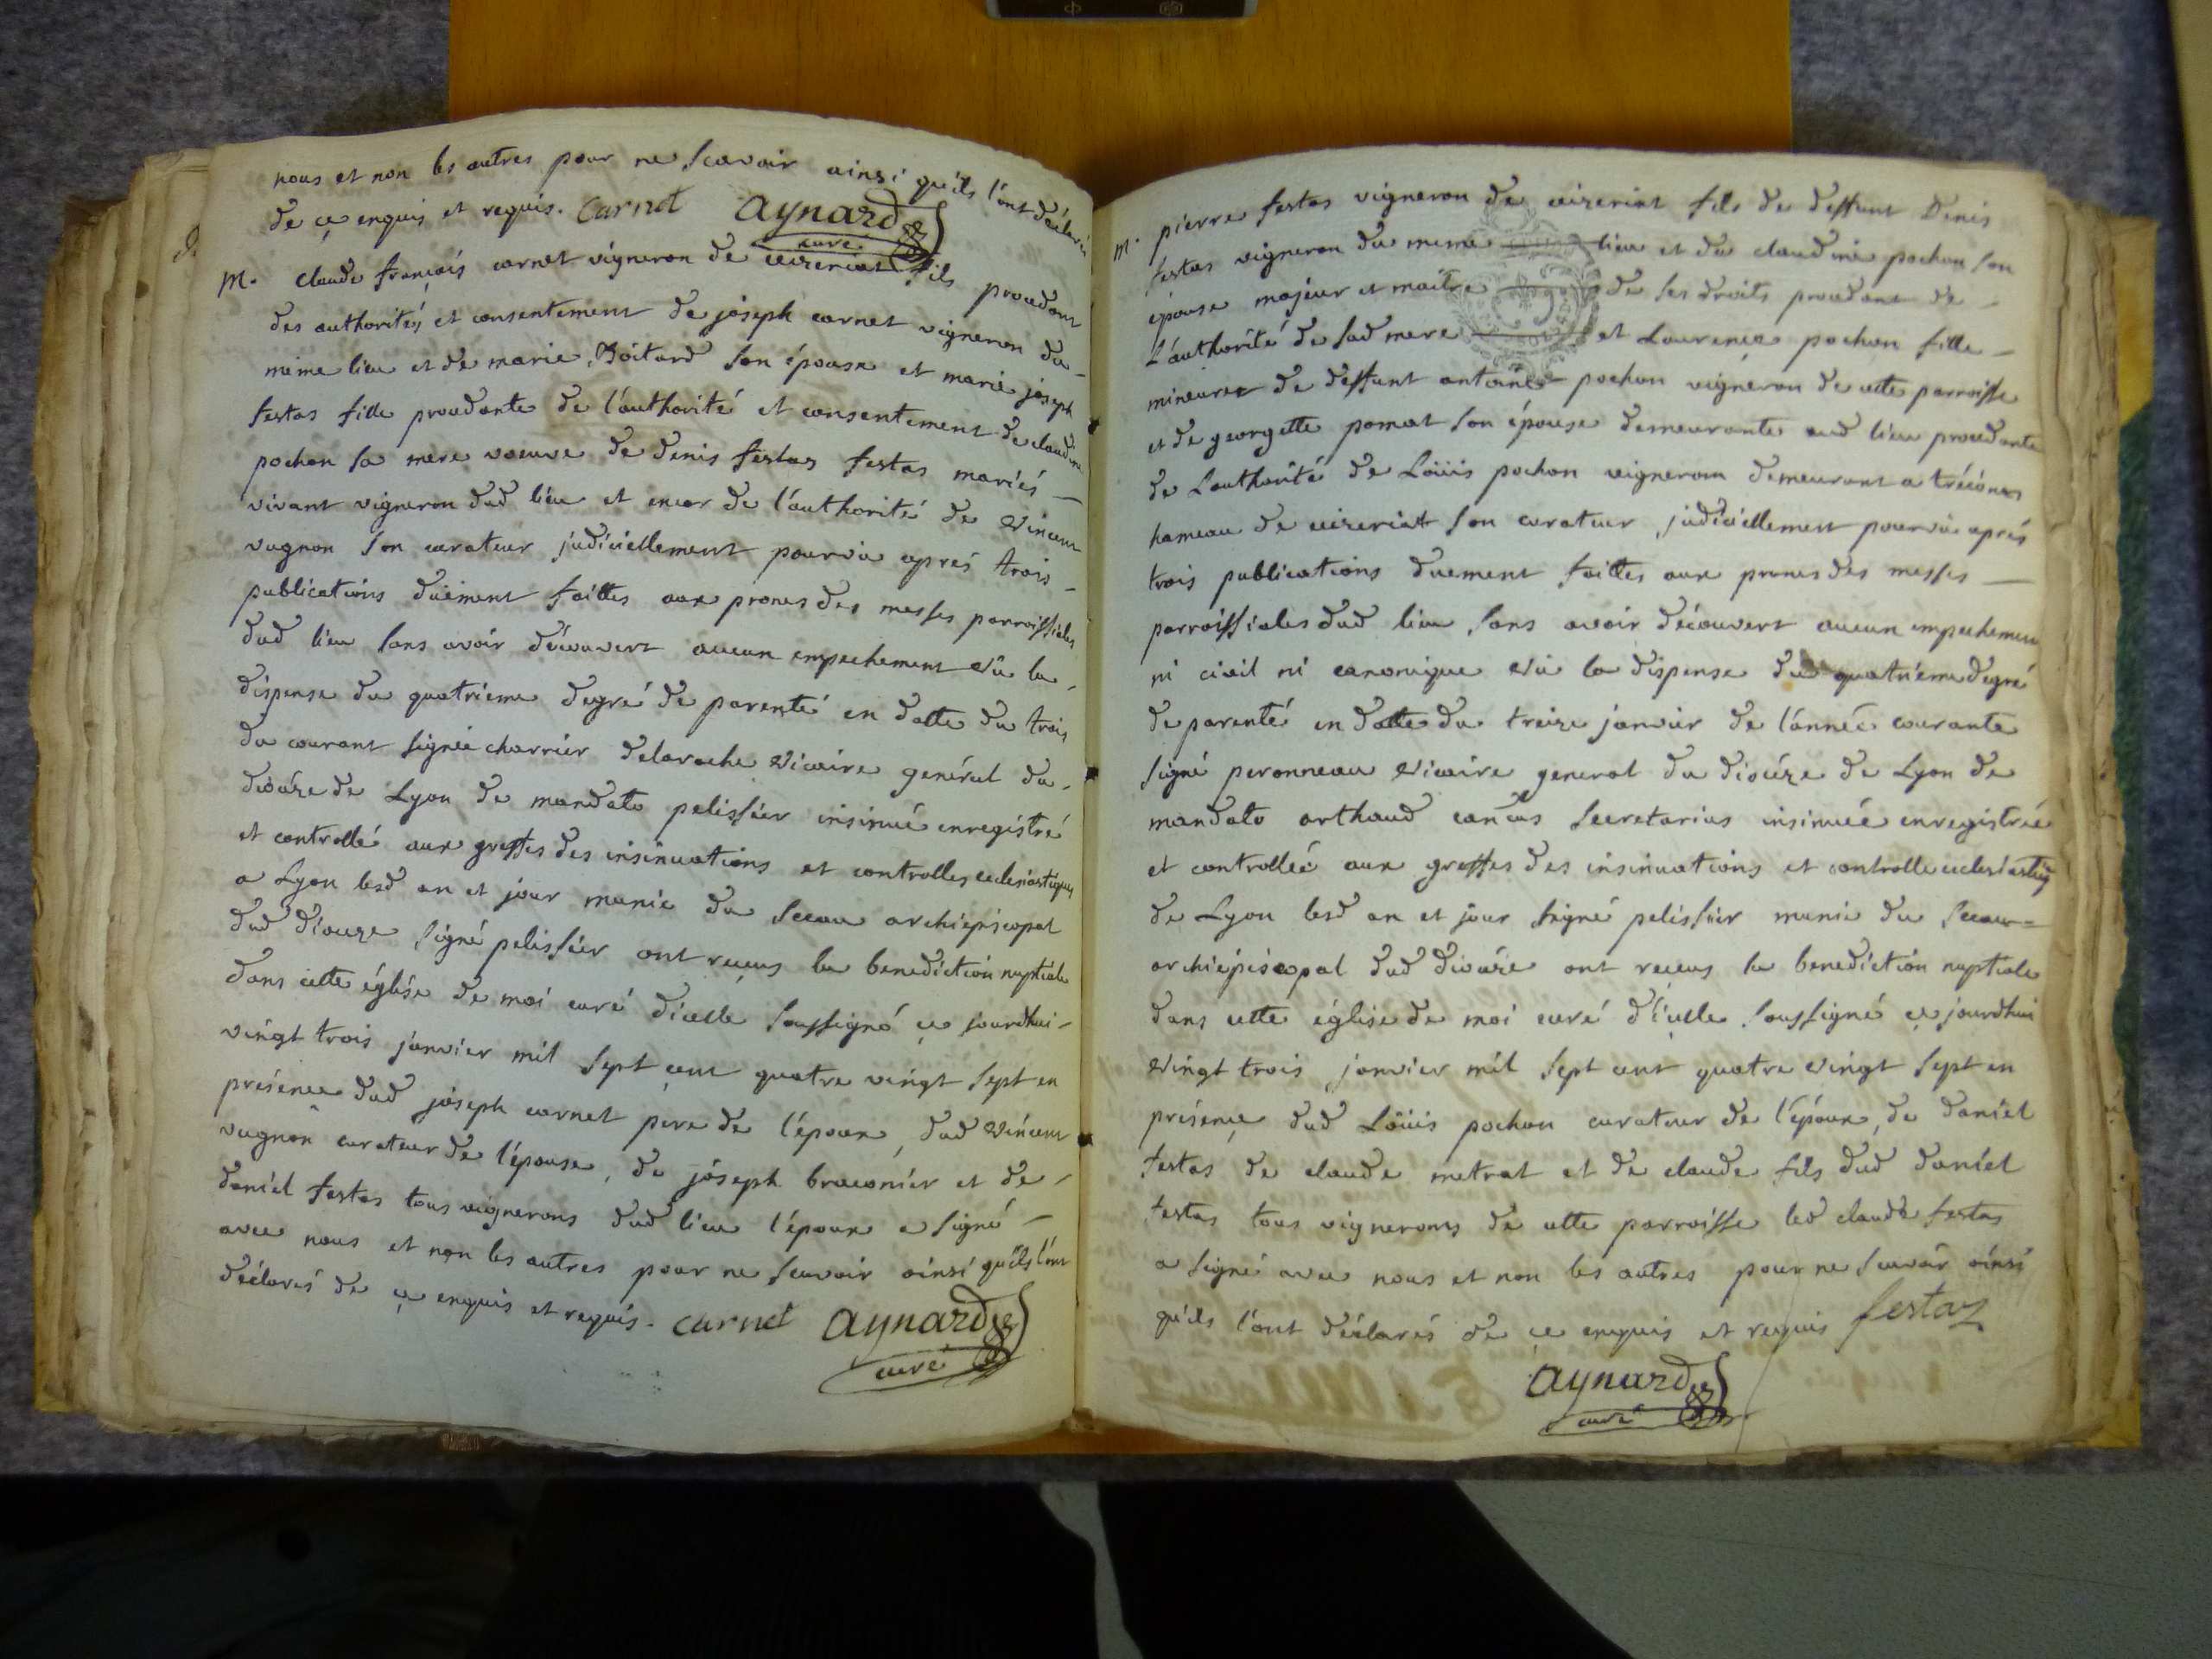 nous et non les autres pour ne scavoir ainsi qu'ils l'ont déclaré
de ce enquis et requis. Carnet aynard
curé
M. claude françois carnet vigneron de vizeriat fils procedant
des authorités et consentement de joseph carnet vigneron du
meme lieu et de marie Boitard son épouse et marie joseph
festas fille procedante de l'authorité et consentement de claudine
pochon sa mere voeuve de denis festas festas mariés
vivant vigneron dud lieu et encor de l'authorité de Vincent
vugnon son curateur judiciellement pourvu aprés trois
publications duëment faittes aux prones des messes parroissiales
dud lieu sans avoir découvert aucun empechement Vû la
dispense du quatrieme degré de parenté en datte du trois
du courant signée charrier delaroche Vicaire general du
diocéze de Lyon de mandato pelissier insinué enregistré
et controllé aux greffes des insinuations et controlles ecclesiastiques
a Lyon lesd an et jour munie du sceau archiepiscopal
dud diocuze signé pelissier ont recus la benediction nuptiale
dans cette église de moi curé d'icelle soussigné ce jourdhui
vingt trois janvier mil sept cent quatre vingt sept en
présence dud joseph carnet pere de l'époux, dud Vincent
vugnon curateur de l'épouse, de joseph braconier et de
daniel festas tous vignerons dud lieu l'époux a signé
avec nous et non les autres pour ne scavoir ainsi qu'ils l'ont
déclarés de ce enquis et requis. carnet aynard
curé
M. pierre festas vigneron de vizeriat fils de deffunt Denis
festas vigneron du meme lieu et de claudine pochon son
épouse majeur et maitre de ses droits procedant de
L'authorité de sad mere et Laurence pochon fille
mineure de deffunt antoine pochon vigneron de cette parroisse
et de georgette pomat son épouse demeurante aud lieu procedante
de Lauthorité de Loüis pochon vigneron demeurant a trécónas
hameau de vizeriat son curateur judiciellement pourvû aprés
trois publications duement faittes aux prones des messes
parroissiales dud lieu sans avoir découvert aucun empechement
ni civil ni canonique Vû la dispense du quatriéme degré
de parenté en datte du treize janvier de l'année courante
signé peronneau Vicaire general du diocéze de Lyon de
mandato arthaud can̄cus secretarius insinuée enregistrée
et controlleé aux greffes des insinuations et controlle ecclesiastiq
de Lyon lesd an et jour signé pelissier munie du sceau=
archiépiscopal dud diocéze ont recus la benediction nuptiale
dans cette église de moi curé d'icelle soussigné ce jourdhui
Vingt trois janvier mil sept cent quatre Vingt sept en
présence dud Loüis pochon curateur de l'époux, de daniel
festas de claude metrat et de claude fils dud daniel
festas tous vignerons de cette parroisse led claude festas
a signé avec nous et non les autres pour ne scavoir ainsi
qu'ils l'ont déclarés de ce enquis et requis festas
aynard
curé